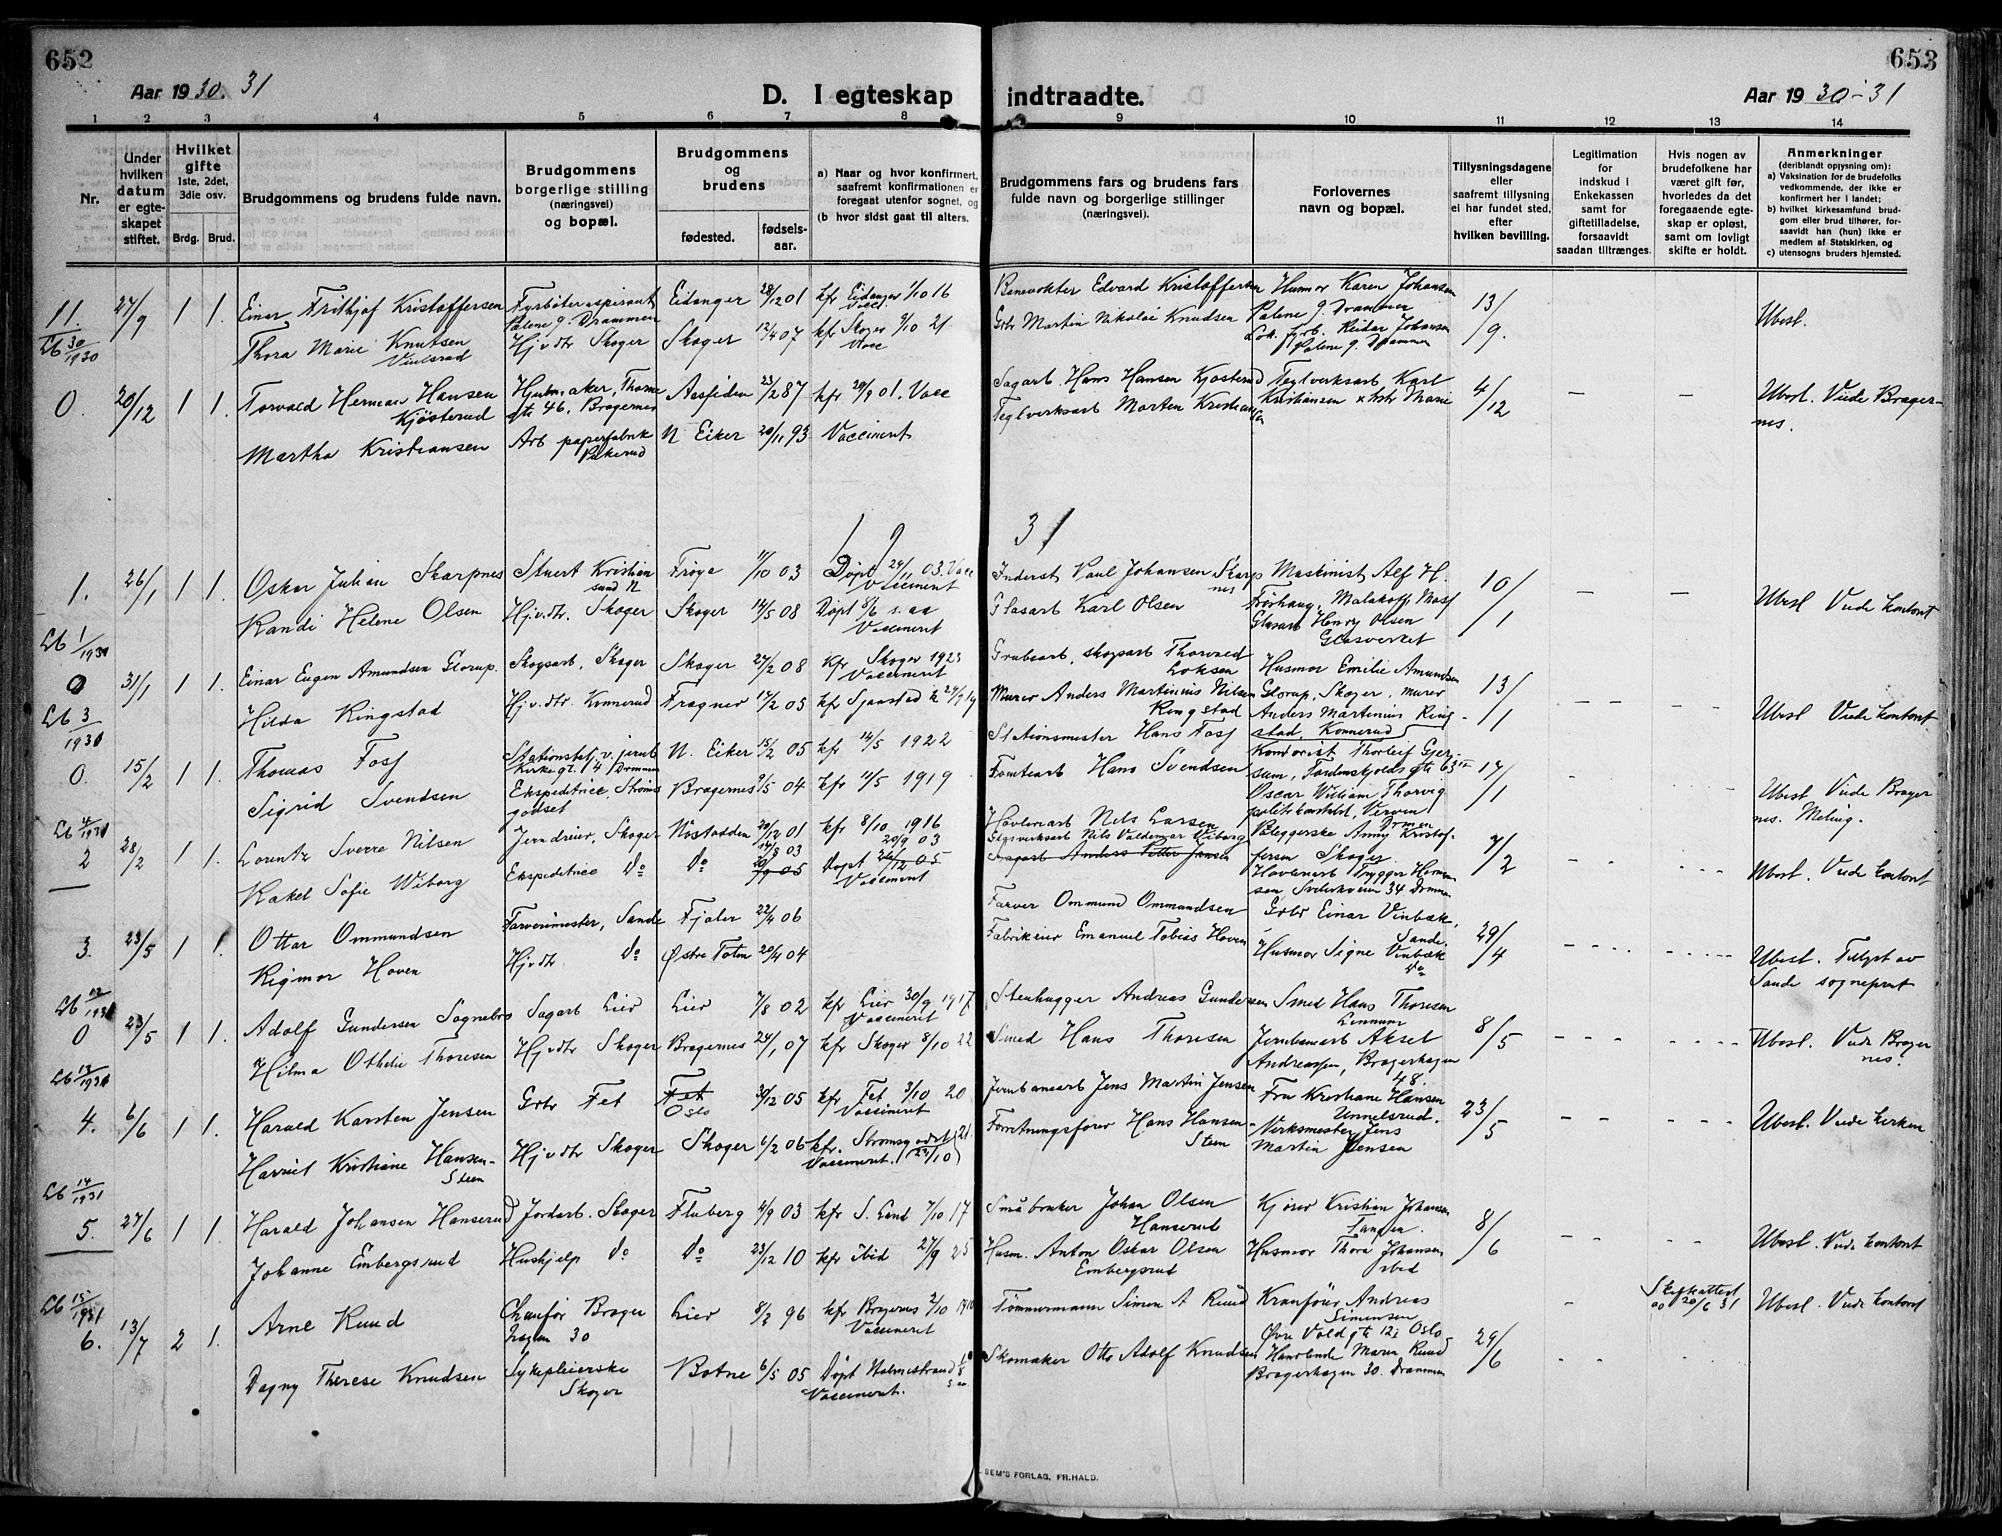 652
653
Aar 1930. 31
D. I egteskap indtraadte.
Aar 1930-31
1 2 3 4 5 6 7 8 9 10 11 12 13 14
Nr.
Under hvilken datum er egteskapet stiftet.
Hvilket gifte 1ste, 2det, 3die osv.
Brdg. Brud.
Brudgommens og brudens fulde navn.
Brudgommens borgerlige stilling (næringsvei) og bopæl.
Brudgommens og brudens
fødested. fødselsaar.
a) Naar og hvor konfirmert, saafremt konfirmationen er foregaat utenfor sognet, og
(b hvor sidst gaat til alters.
Brudgommens fars og brudens fars fulde navn og borgerlige stillinger (næringsvei).
Forlovernes navn og bopæl.
Tillysningsdagene eller saafremt tillysning ei har fundet sted, efter hvilken bevilling.
Legitimation for indskud i Enkekassen samt for giftetilladelse, forsaavidt saadan tiltrænges.
Hvis nogen av brudefolkene har været gift før, hvorledes da det foregaaende egteskap er opløst, samt om lovligt skifte er holdt.
Anmerkninger
(deriblandt opysning om):
a) Vaksination for de brudefolks vedkommende, der ikke er konfirmert her i landet;
b) hvilket kirkesamfund brudgom eller brud tilhører, forsaavidt han (hun) ikke er medlem af Statskirken, og
c) utensogns bruders hjemsted.
11 27/9 1 1. Einar Fridthjof Kristoffersen Fyrbøteraspirant Eidanger 28/12 01 kfr Eidanger 1/10 16 Banevokter Edvard Kristoffersen Husmor Karen Johansen 13/9. Ubesl.
Palene 9. Drammen Vacc. Palene 9. Drammen
Lb 30/1930 Thora Marie Knutsen Hjv.dtr Skoger Skoger 12/4 07 kfr Skoger 2/10 21 Gbr Martin Nikolai Knudsen Reidar Johansen
Vinlsrud Vacc Palene 9. Drammen
0. 20/12 1 1. Torvald Herman Hansen Hjulmaker, Thorne Aasfiden 23/2 87 kfr 29/9 01. Vacc Sagarb. Hans Hansen Kjøsterud Teglverksarb. Karl 4/12 - - Ubesl. Viede Bragernes.
Kjøsterud gt. 46. Bragernes Teglverksarb Morten Kristiansen Kristiansen x hstr Marie
Martha Kristiansen Arb papirfabrik N Eiker 20/11 93 Vaccinert
19 31
1. 26/1 1 1. Oskar Julian Skarpnes Stuert Kristiansund N Frøya 11/10 03 Døpt 24/11 03. Vacc Inderst Paul Johansen Skarpnes Maskinist Alf H. 10/1 - - Ubesl Viede kontoret
Vaccinert Frøshaug, Malakoff, Moss
Randi Helene Olsen Hjv.dtr. Skoger Skoger 14/5 08 Døpt 8/6 s. aa Glasarb Karl Olsen Glasarb Henry Olsen
Lb 1/1931 Vaccinert Glasverket
0 31/1 1 1. Einar Eugen Amundsen Glorup. Skogsarb, Skoger Skoger 27/2 08 Kfr Skoger 1923 Grubearb, skogsarb Thorvald Husmor Emilie Amundsen 13/1 - - Ubesl Viede kontoret
Vaccinert Loksen Glorup, Skoger, murer
Lb 3/1931 Hilda Ringstad Hjv.dtr. Konnerud Fragner 17/2 05 kfr Sjaastad k 29/9 19 Murer Anders Martinius Nilsen Anders Martinius Ringstad, Konnerud
Ringstad
0. 15/2 1 1. Thomas Foss Stationsbetj. v. jernb N. Eiker 15/2 05 kfr 14/5 1922 Stationsmester Hans Foss Kontorist Thorleif Gjersum, Tordenskjolds gt 63 17/1 Ubesl Viede Bragernes. Meling.
Kirkegt. 14 Drammen
Sigrid Svendsen Ekspeditrice, Strømsgodset Bragernes 9/5 04 kfr 11/5 1919 Tomtearb Hans Svendsen Oscar William Thorvig
Lb 4/1931 politikonstabel,
2 28/2 1 1. Lorentz Sverre Nilsen Jerndreier, Skoger Notodden 20/12 01 kfr 8/10 1916 Høvleriarb Nils Larsen Paleggerske Anny Kristoffersen Skoger 7/2 - - Ubesl. Viede kontoret
14/3 03 20/9 03 Elgsverksarb Nils Valdemar Wiborg
Rakel Sofie Wiborg Ekspeditrice do do 20/9 05 Døpt 26/12 05 Sagarb Anders Petter Jansen Høvleriarb Trygger Hermansen 34 Drammen
Vaccinert
3. 23/5 1 1. Ottar Ommundsen Farverimester, Sande Fjaler 22/4 06 Farver Ommund Ommundsen Gbr Einar Vinbæk, Sande 29/4 - - Ubesl. Tillyst av Sande sogneprest
Rigmor Hoven Hjv.dtr do Østre Toten 20/4 04 Fabrikeier Emanuel Tobias Hoven Husmor Signe Vinbæk do
Lb 12/1931
0 23/5 1 1. Adolf Gundersen Sognebro Sagarb Lier Lier 7/8 02 kfr Lier 30/9 1917 Stenhugger Andreas Gundersen Smed Hans Thoresen 8/5 - - Ubesl. Viede Bragernes.
Vaccineret Linnum
Hilma Othelie Thoresen Hjv.dtr Skoger Bragernes 24/1 07 kfr Skoger 8/10 22 Smed Hans Thoresen Jernbanearb Aksel
Lb 13/1931 Andreassen, Bragerhagen 48.
4. 6/6 1 1. Harald Karsten Jensen Gbr Fet Fet 30/12 05 kfr Fet 3/10 20 Jernbanearb Jens Martin Jensen Fru Kristiane Hansen 23/5 - - Ubesl. Viede kirken
Oslo Vaccineret Unnelsrud.
Harriet Kristiane Hansen-Steen Hjv.dtr Skoger Skoger 6/2 06 kfr. Strømsgodset (23/10 21) Forretningsfører Hans Hansen-Steen Verksmester Jens
Vaccineret. Martin Jensen
Lb 14/1931
5. 27/6 1 1. Harald Johansen Hanserud Jordarb. Skoger Fluberg 4/9 03 kfr S. Land 7/10 17 Småbruker Johan Olsen Kjører Kristian Johansen 8/6 - - Ubesl. Viede kontoret
Hanserud Tangen.
Johanne Embergsrud Hushjelp do do 23/12 10 kfr ibid 27/9 25 Husm. Anton Oskar Olsen Husmor Thora Johansen
Embergsrud ibid
Lb 15/1931
6. 13/7 2 1. Arne Ruud Chauffør Bragerhagen 30 Lier 8/3 96 kfr Bragernes 2/10 1910 Tømmermann Simen A Ruud Kranfører Andreas Simensen 29/6 - Skifteattest oo 20/6 31 Ubesl. Viede kontoret
Vaccineret Øvre Voldgt. 12 Oslo
Dagny Therese Knudsen Sykepleierske Botne 6/5 05 Døpt Holmestrand Skomaker Otto Adolf Knudsen Handlende Maren Ruud
Skoger Vaccineret. Bragerhagen 30. Drammen
SEM'S FORLAG, FR.HALD.